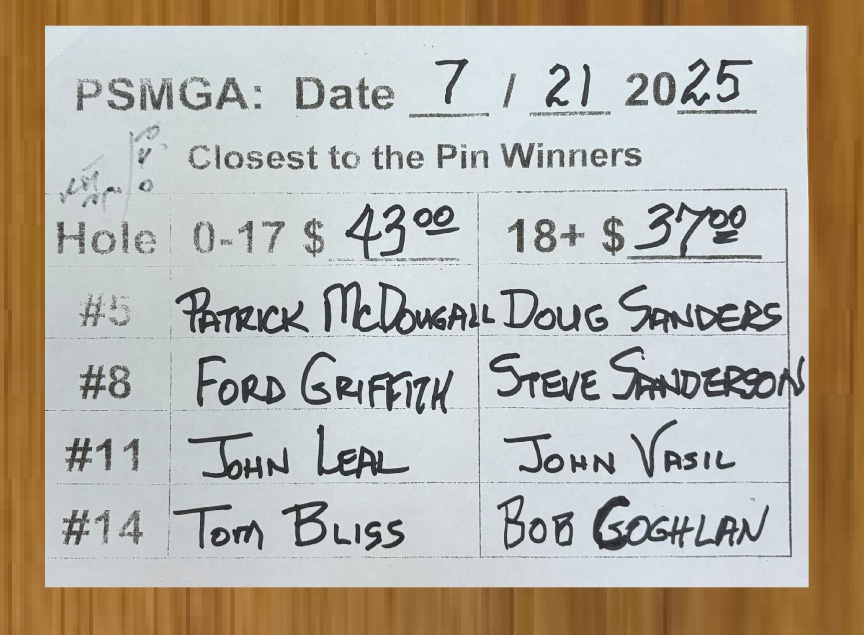 PSMGA: Date 7 / 21 2025
Closest to the Pin Winners
Hole 0-17 $ 43.00 18+ $ 37.00
#5 PATRICK McDOUGALL DOUG SANDERS
#8 FORD GRIFFITH STEVE SANDERSON
#11 JOHN LEAL JOHN VASIL
#14 TOM BLISS BOB